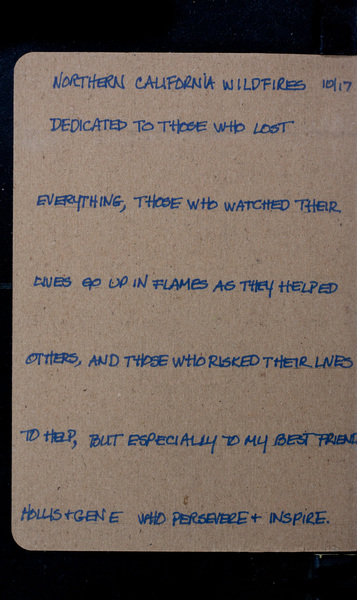 NORTHERN CALIFORNIA WILDFIRES 10/17
DEDICATED TO THOSE WHO LOST
EVERYTHING, THOSE WHO WATCHED THEIR
LIVES GO UP IN FLAMES AS THEY HELPED
OTHERS, AND THOSE WHO RISKED THEIR LIVES
TO HELP, BUT ESPECIALLY TO MY BEST FRIEND
HOLLIS + GENE WHO PERSEVERE + INSPIRE.